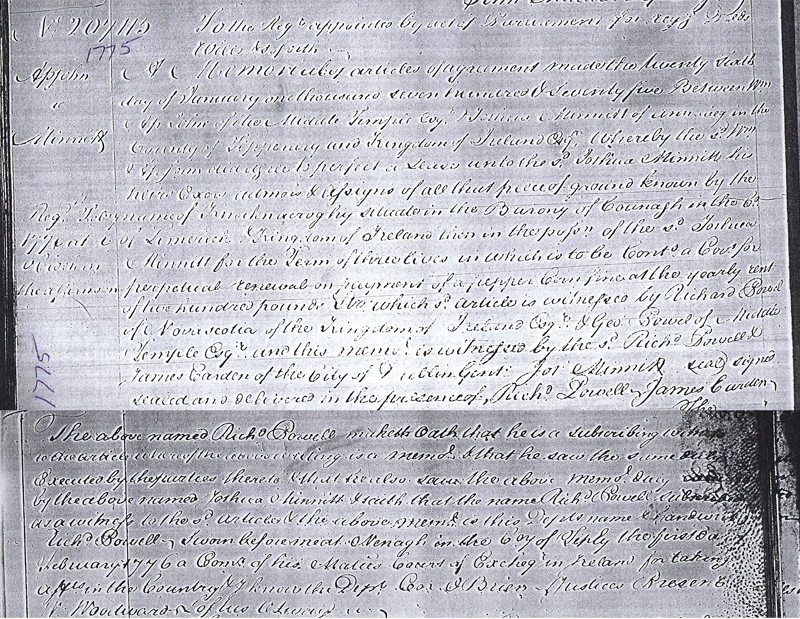 No. 20745 To the Regr. appointed by act of Parliament for regg. Deeds
1775 Wills & so forth
Apjohn A Memorial of articles of agreement made the twenty sixth
to day of January one thousand seven hundred & seventy five Between Wm
Minnitt Apjohn of the Middle Temple Esqr. & Joshua Minnitt of in the
County of Tipperary and Kingdom of Ireland Esqr. Whereby the sd. Wm
Apjohn did agree to perfect a Lease unto the sd. Joshua Minnitt his
heirs Exors admors & assigns of all that piece of ground known by the
Regd. name of situate in the Barony of Counagh in the Co.
1776 at of Limerick & Kingdom of Ireland then in the posson of the sd. Joshua
Minnitt for the Term of three lives in which is to be Contd. a Covt. for
the afternoon perpetual renewal on payment of a pepper Corn fine at the yearly rent
of five hundred pounds which sd. article is witnessed by Richard Powell
of Novascotia of the Kingdom of Ireland Esqr. & Geo. Powel of Middle
Temple Esqr. and this memol. is witnessed by the sd. Richd. Powell &
1775 James Carden of the City of Dublin Gent. Jos. Minnitt seal signed
sealed and delivered in the presence of Richd. Powell James Carden
The
The above named Richd. Powell maketh Oath that he is a subscribing witness
to the article whereof the above writing is a memol. & that he saw the same duly
Executed by the parties thereto & that he also saw the above memol. duly
by the above named Joshua Minnitt & saith that the name Richd. Powell subscribed
as a witness to the sd. article & the above memol. is this Depts name & handwriting
Richd. Powell Sworn before me at Nenagh in the Coy of Tipry the first day of
February 1776 a Comr. of his Maties Court of Excheqr in Ireland for taking
affts in the Country & I know the Dept. Cor. O Brien Justices Present
Woodward